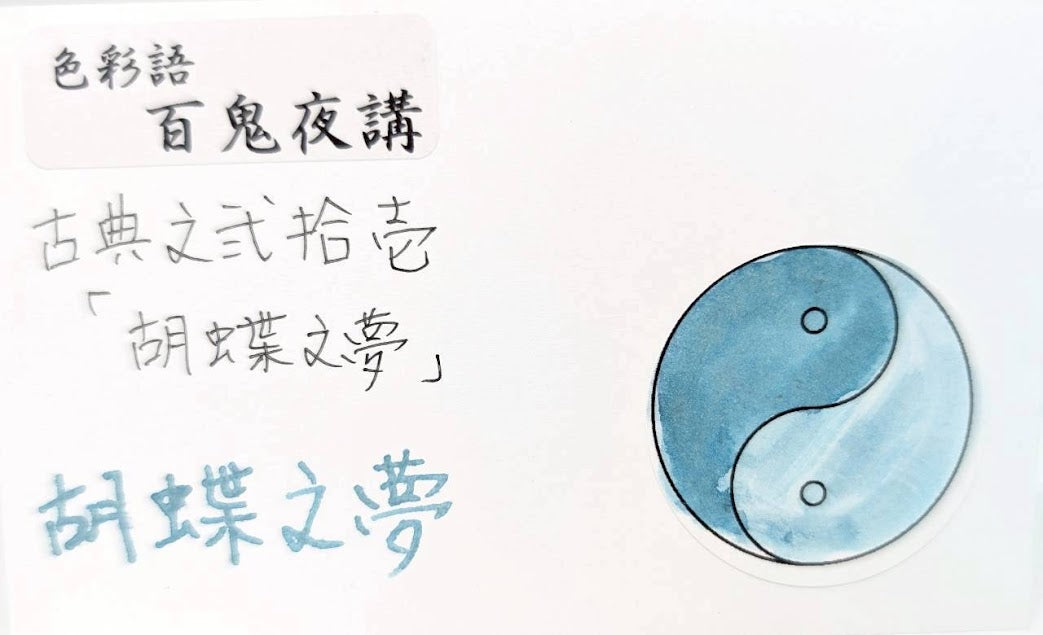 色彩語
百鬼夜講
古典之弐拾壱
「胡蝶之夢」
胡蝶之夢